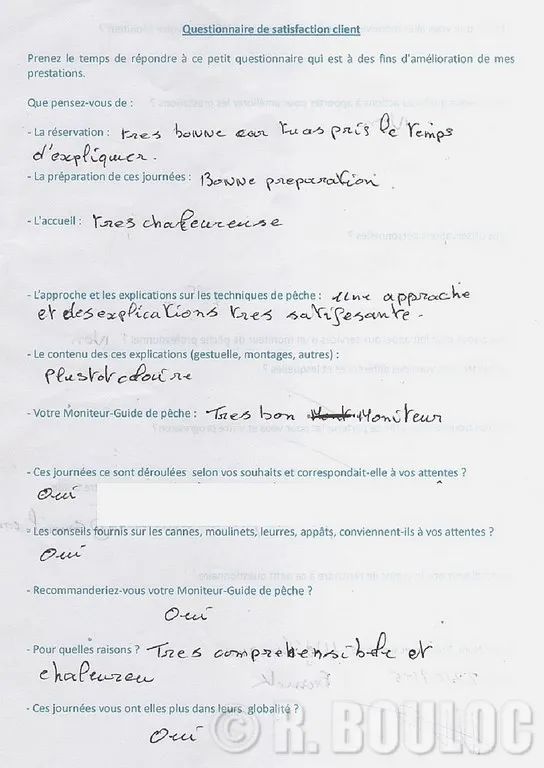 Questionnaire de satisfaction client
Prenez le temps de répondre à ce petit questionnaire qui est à des fins d'amélioration de mes
prestations.
Que pensez-vous de :
- La réservation : tres bonne car tu as pris le temps
d'expliquer.
- La préparation de ces journées : Bonne preparation.
- L'accueil : tres chaleureuse
- L'approche et les explications sur les techniques de pêche : une approche
et des explications tres satifesante.
- Le contenu des ces explications (gestuelle, montages, autres) :
plustot claire
- Votre Moniteur-Guide de pêche : Tres bon Moniteur
- Ces journées ce sont déroulées selon vos souhaits et correspondait-elle à vos attentes ?
Oui
- Les conseils fournis sur les cannes, moulinets, leurres, appâts, conviennent-ils à vos attentes ?
Oui
- Recommanderiez-vous votre Moniteur-Guide de pêche ?
Oui
- Pour quelles raisons ? Tres comprehensible et
chaleureu
- Ces journées vous ont elles plus dans leurs globalité ?
Oui
© R. BOULOC